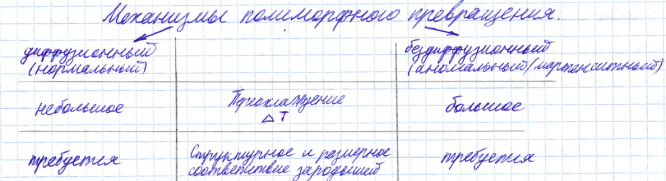 Механизмы полиморфного превращения.
диффузионный
(нормальный)
бездиффузионный
(аномальный/мартенситный)
небольшое
Переохлаждение
ΔT
большое
требуется
Структурное и размерное
соответствие зародышей
требуется